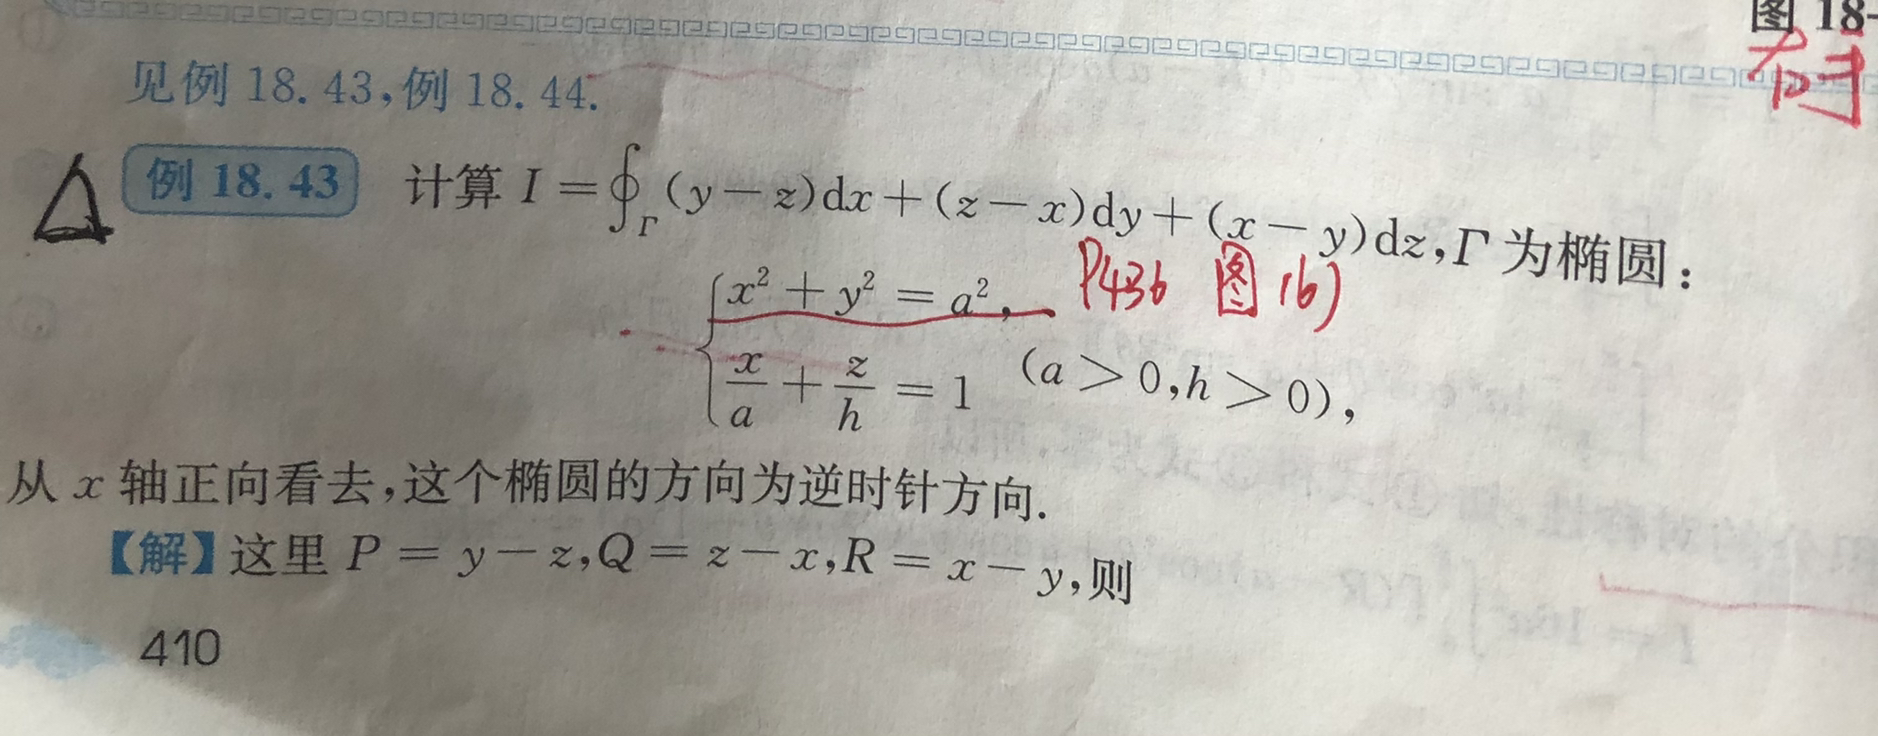 图 18-
见例 18.43,例 18.44.
例 18.43 计算 I = ∮_Γ (y − z)dx + (z − x)dy + (x − y)dz, Γ 为椭圆:
x² + y² = a², P436 图 (b)
x/a + z/h = 1 (a > 0, h > 0),
从 x 轴正向看去,这个椭圆的方向为逆时针方向.
【解】这里 P = y − z, Q = z − x, R = x − y, 则
410